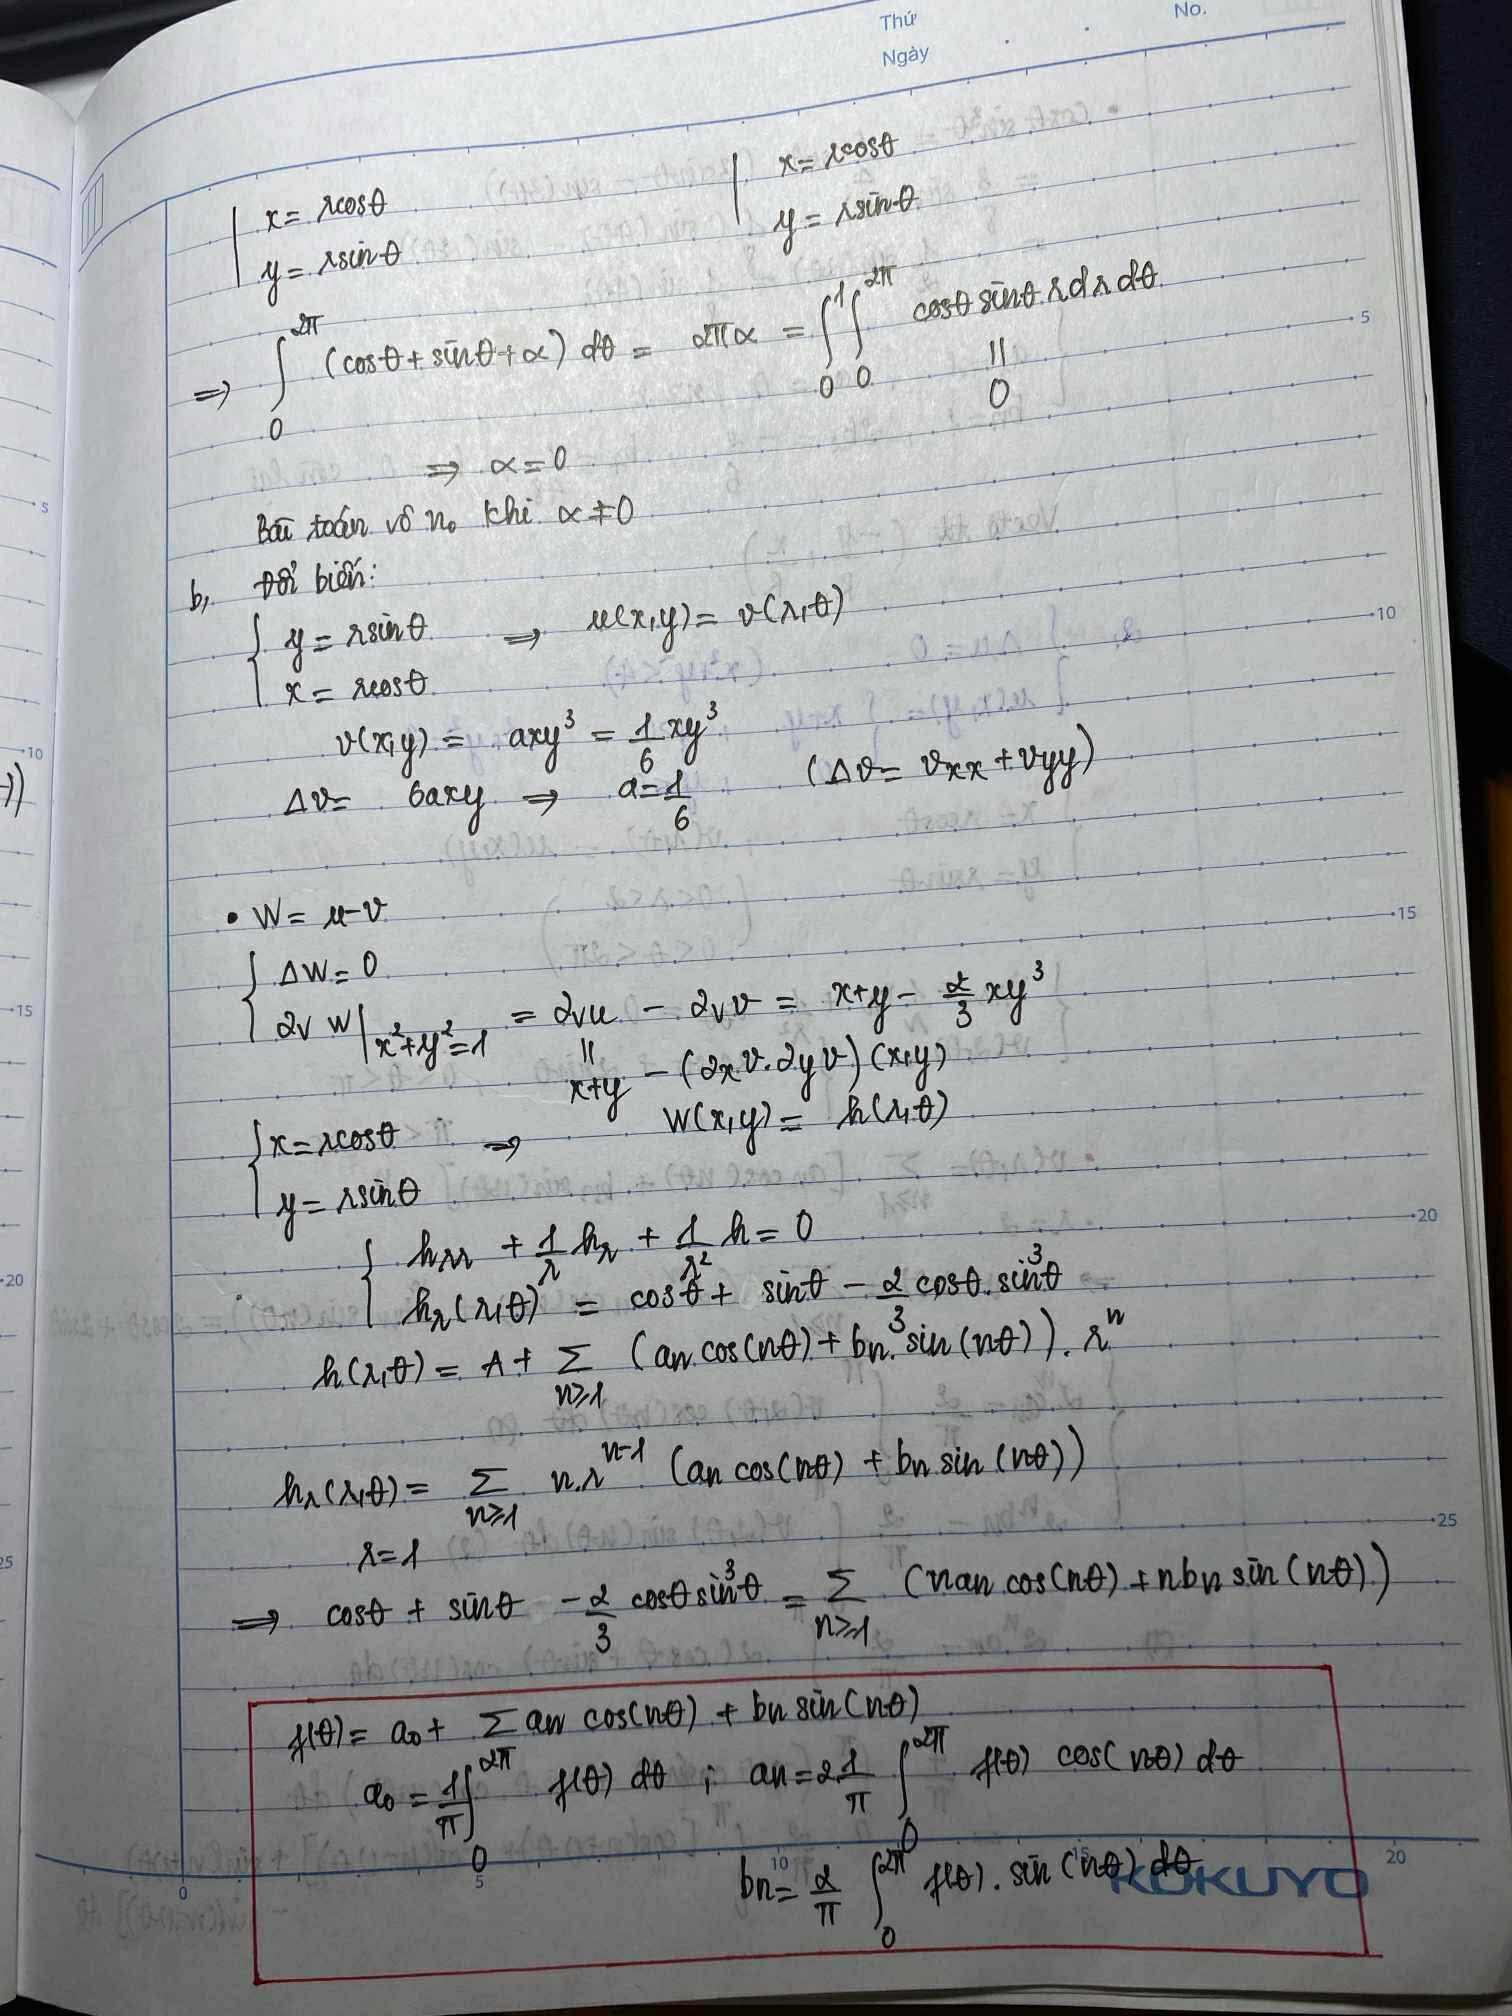 Thứ No.
Ngày
x = rcosθ x = rcosθ
y = rsinθ y = rsinθ
⇒ ∫₀^{2π} (cosθ + sinθ + α) dθ = 2πα = ∫₀¹ ∫₀^{2π} cosθ sinθ r dr dθ
||
0
⇒ α = 0
Bài toán vô n₀ khi α ≠ 0
b, Đổi biến:
{ y = rsinθ ⇒ u(x,y) = v(r,θ)
x = rcosθ
v(x,y) = axy³ = 1/6 xy³
Δv = 6axy ⇒ a = 1/6 (Δv = vxx + vyy)
• W = u-v
{ ΔW = 0
∂v W|x²+y²=1 = ∂vu - ∂vv = x+y - 2/3 xy³
||
x+y - (∂xv.∂yv)(x,y)
{ x = rcosθ ⇒ W(x,y) = h(r,θ)
y = rsinθ
{ hrr + 1/r hr + 1/r² h = 0
hr(r,θ) = cosθ + sinθ - 2/3 cosθ.sin³θ
h(r,θ) = A + Σ n≥1 (an cos(nθ) + bn.sin(nθ)).rⁿ
hr(r,θ) = Σ n≥1 n.rⁿ⁻¹ (an cos(nθ) + bn sin(nθ))
r = 1
⇒ cosθ + sinθ - 2/3 cosθ sin³θ = Σ n≥1 (nan cos(nθ) + nbn sin(nθ))
f(θ) = a₀ + Σ an cos(nθ) + bn sin(nθ)
a₀ = 1/π ∫₀^{2π} f(θ) dθ ; an = 2.1/π ∫₀^{2π} f(θ) cos(nθ) dθ
bn = 2/π ∫₀^{2π} f(θ).sin(nθ) dθ
KOKUYO